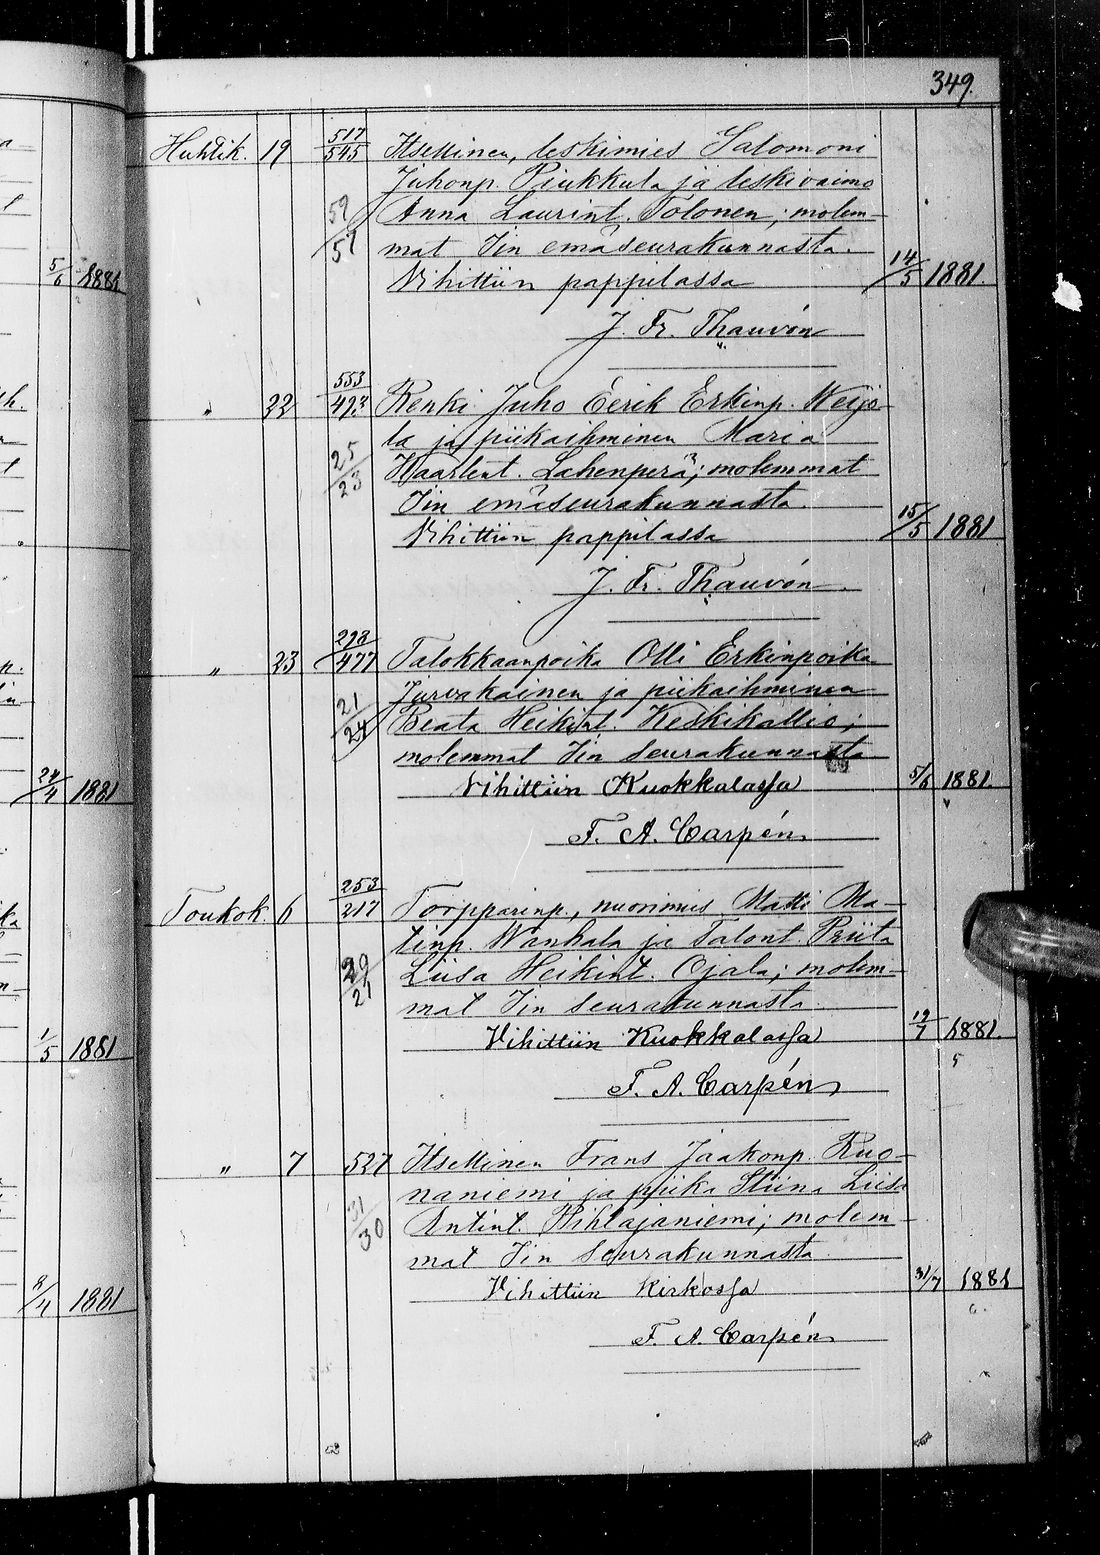 349.
Huhtik. 19 517/545 Itsellinen, leskimies Salomoni
Juhonp. Piukkula ja leskivaimo
59/57 Anna Laurint. Tolonen; molem-
mat Iin emäseurakunnasta.
Vihittiin pappilassa 14/5 1881.
J. Fr. Thauvón
" 22 553/493 Renki Juho Eerik Erkinp. Keijo-
la ja piikaihminen Maria
25/23 Kaarlent. Lahenperä; molemmat
Iin emäseurakunnasta.
Vihittiin pappilassa 15/5 1881
J. Fr. Thauvón
" 23 298/477 Talokkaanpoika Olli Erkinpoika
Jurvakainen ja piikaihminen
21/24 Beata Heikint. Keskikallio;
molemmat Iin seurakunnasta
Vihittiin Kuokkalassa 5/6 1881.
F. A. Carpén
Toukok 6 253/217 Torpparinp, nuorimies Matti Ma-
tinp. Wanhala ja Talont. Priita
29/21 Liisa Heikint. Ojala; molem-
mat Iin seurakunnasta.
Vihittiin Kuokkalassa 19/7 1881.
F. A. Carpén
" 7 527 Itsellinen Frans Jaakonp. Ruo-
naniemi ja piika Stiina Liisa
31/30 Antint. Pihlajaniemi; molem-
mat Iin seurakunnasta.
Vihittiin Kirkossa 31/7 1881
F. A. Carpén
5/6 1881
24/4 1881
1/5 1881
8/4 1881